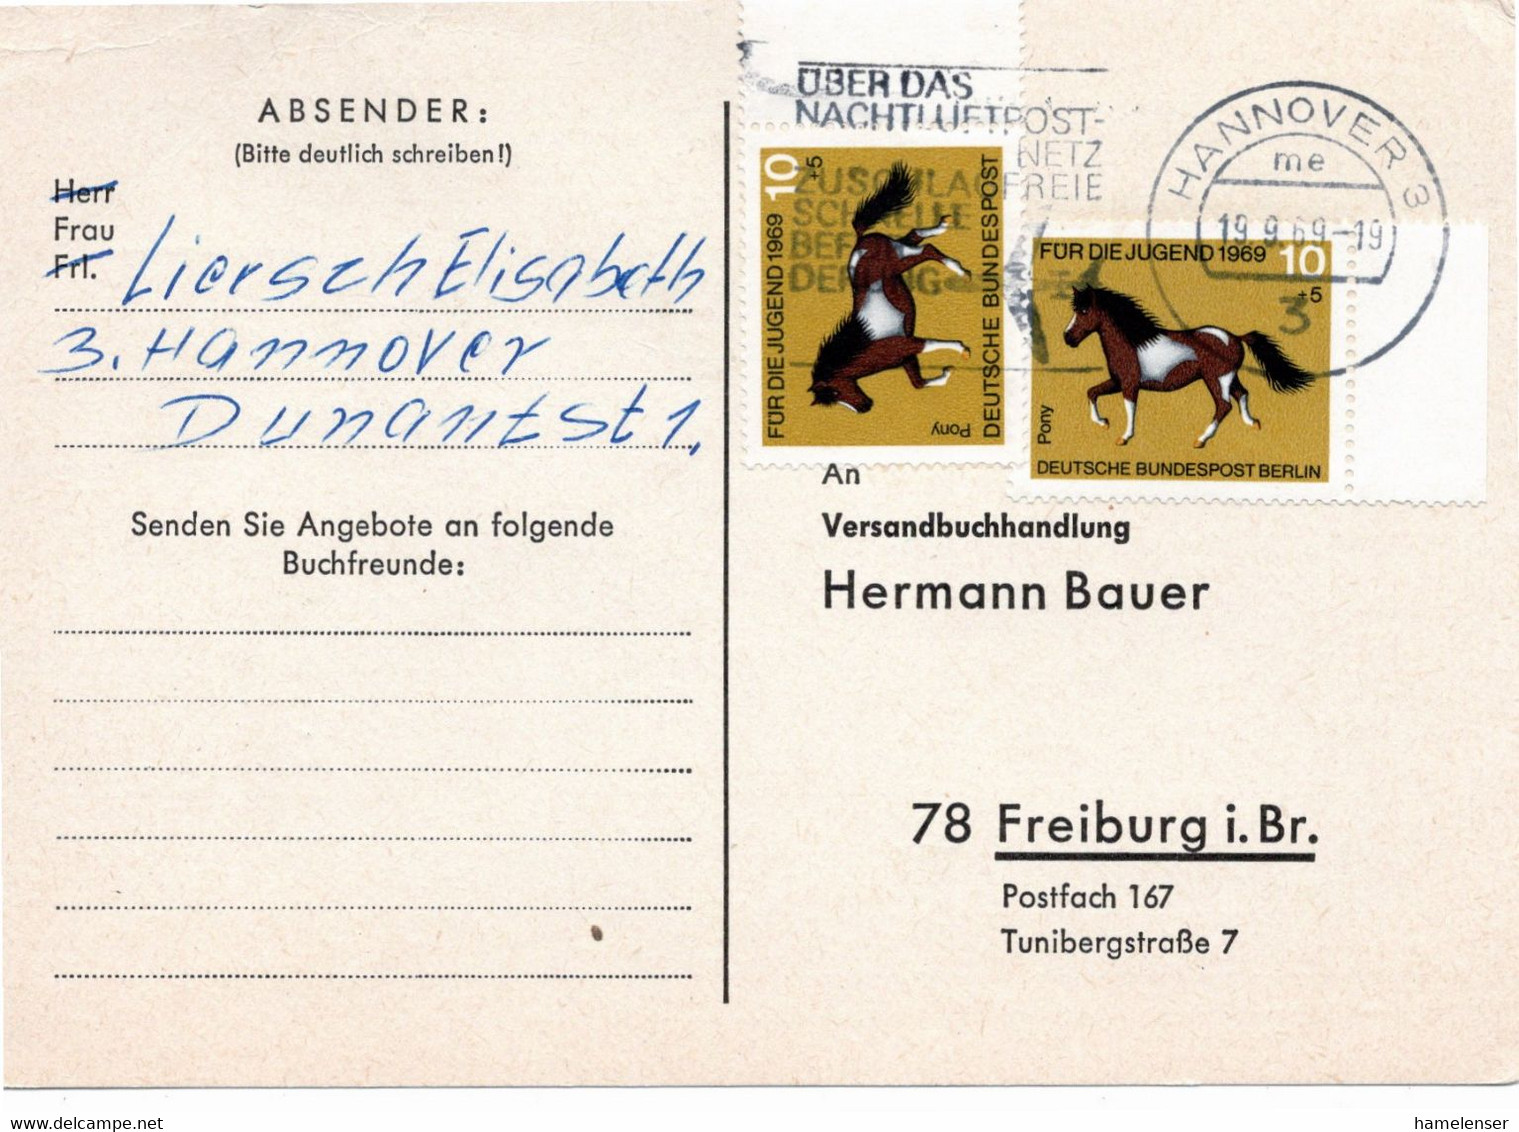 ABSENDER:
(Bitte deutlich schreiben!)
Herr
Frau
Frl.
Liersch Elisabeth
3. Hannover
Dunantst 1,
Senden Sie Angebote an folgende
Buchfreunde:
ÜBER DAS
NACHTLUFTPOST-
NETZ
ZUSCHLAGFREIE
SCHNELLE
BEFÖR
DERUNG
HANNOVER 3
me
19.9.69-19
3
10
+5
FÜR DIE JUGEND 1969
Pony
DEUTSCHE BUNDESPOST
FÜR DIE JUGEND 1969
10
+5
Pony
DEUTSCHE BUNDESPOST BERLIN
An
Versandbuchhandlung
Hermann Bauer
78 Freiburg i. Br.
Postfach 167
Tunibergstraße 7
www.delcampe.net
hamelenser